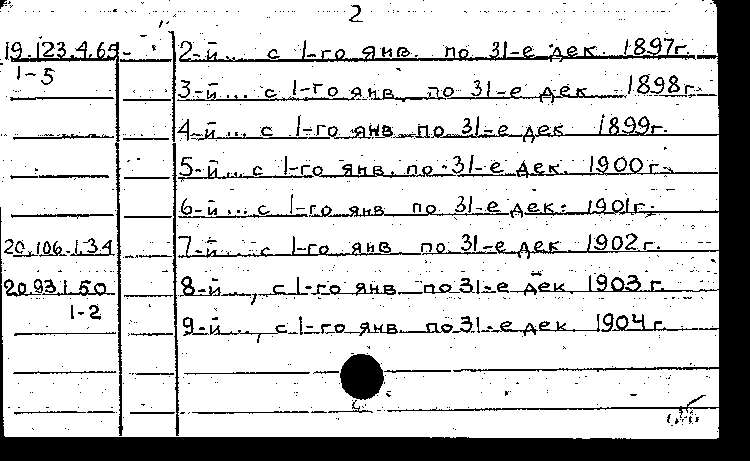 2
19.123.4.65- 2-й... с 1-го янв. по 31-е дек. 1897г.
1-5
3-й... с 1-го янв. по 31-е дек 1898г.
4-й... с 1-го янв по 31-е дек 1899г.
5-й... с 1-го янв. по 31-е дек. 1900г.
6-й... с 1-го янв по 31-е дек. 1901г.
20.106.1.34 7-й... с 1-го янв по 31-е дек 1902г.
20.93.1.50 8-й..., с 1-го янв по 31-е дек. 1903г.
1-2
9-й..., с 1-го янв. по 31-е дек. 1904г.